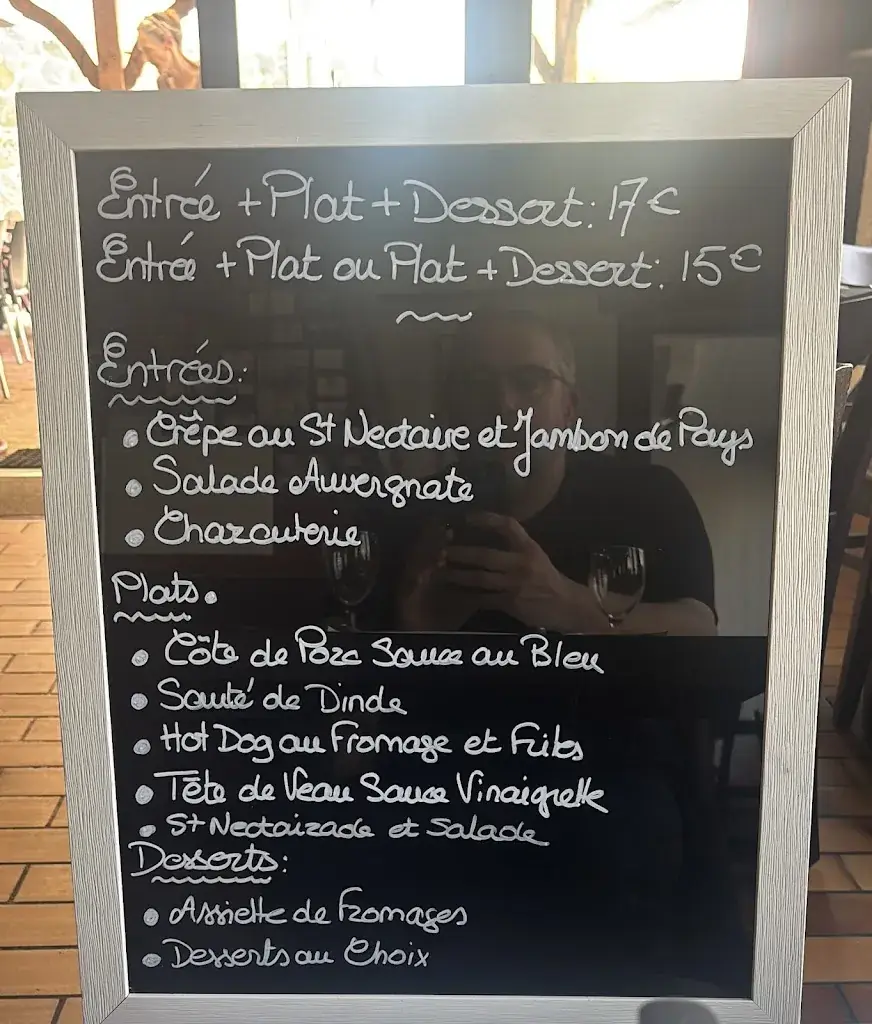 Entrée + Plat + Dessert: 17€
Entrée + Plat ou Plat + Dessert: 15€
Entrées:
• Crêpe au St Nectaire et Jambon de Pays
• Salade Auvergnate
• Charcuterie
Plats.
• Côte de Porc Sauce au Bleu
• Sauté de Dinde
• Hot Dog au Fromage et Frites
• Tête de Veau Sauce Vinaigrette
• St Nectairade et Salade
Desserts:
• Assiette de Fromages
• Desserts au Choix